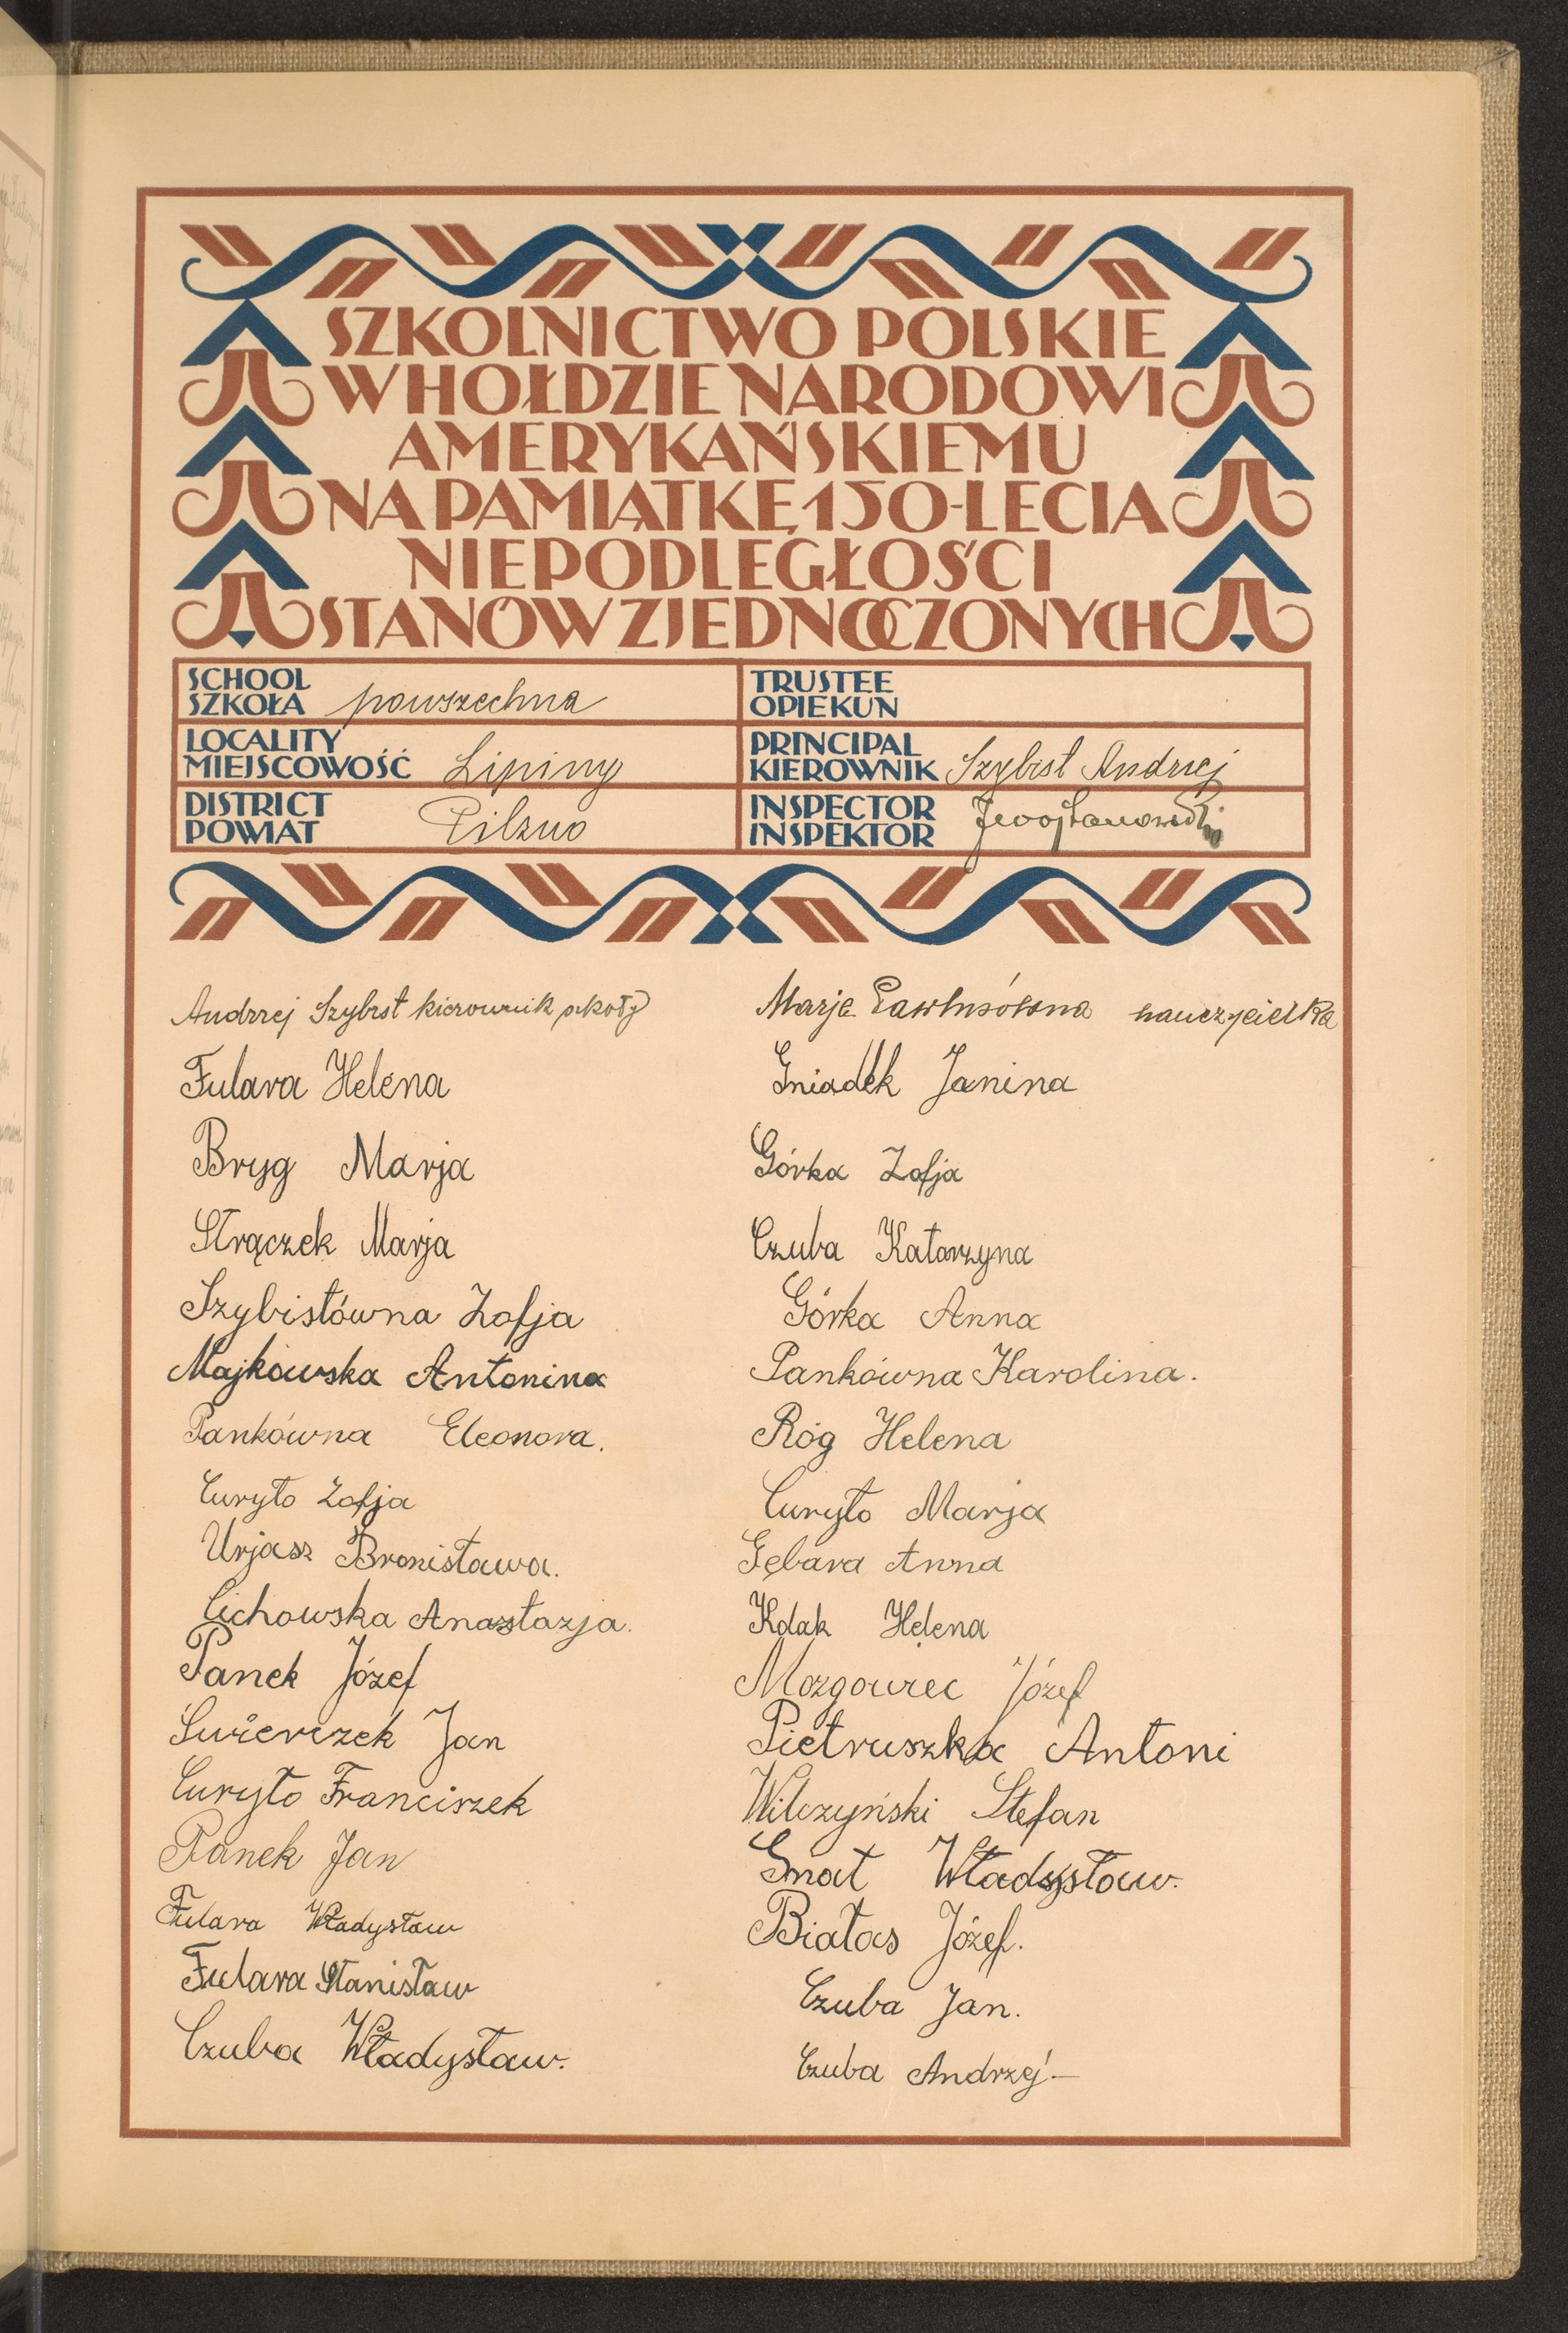 SZKOLNICTWO POLSKIE
W HOŁDZIE NARODOWI
AMERYKAŃSKIEMU
NA PAMIĄTKĘ 150-LECIA
NIEPODLEGŁOŚCI
STANÓW ZJEDNOCZONYCH
SCHOOL
SZKOŁA powszechna
LOCALITY
MIEJSCOWOŚĆ Lipiny
DISTRICT
POWIAT Pilzno
TRUSTEE
OPIEKUN
PRINCIPAL
KIEROWNIK Szybist Andrzej
INSPECTOR
INSPEKTOR
Andrzej Szybist kierownik szkoły
Fulara Helena
Bryg Marja
Strączek Marja
Szybistówna Zofja
Majkowska Antonina
Pankówna Eleonora.
Curyło Zofja
Urjasz Bronisława.
Cichowska Anastazja.
Panek Józef
Świerczek Jan
Curyło Franciszek
Panek Jan
Fulara Władysław
Fulara Stanisław
Czuba Władysław.
Marja nauczycielka
Gniadek Janina
Górka Zofja
Czuba Katarzyna
Górka Anna
Pankówna Karolina.
Róg Helena
Curyło Marja
Gębara Anna
Kdak Helena
Mozgowiec Józef
Pietruszka Antoni
Wilczyński Stefan
Gnat Władysław.
Białas Józef.
Czuba Jan.
Czuba Andrzej.—